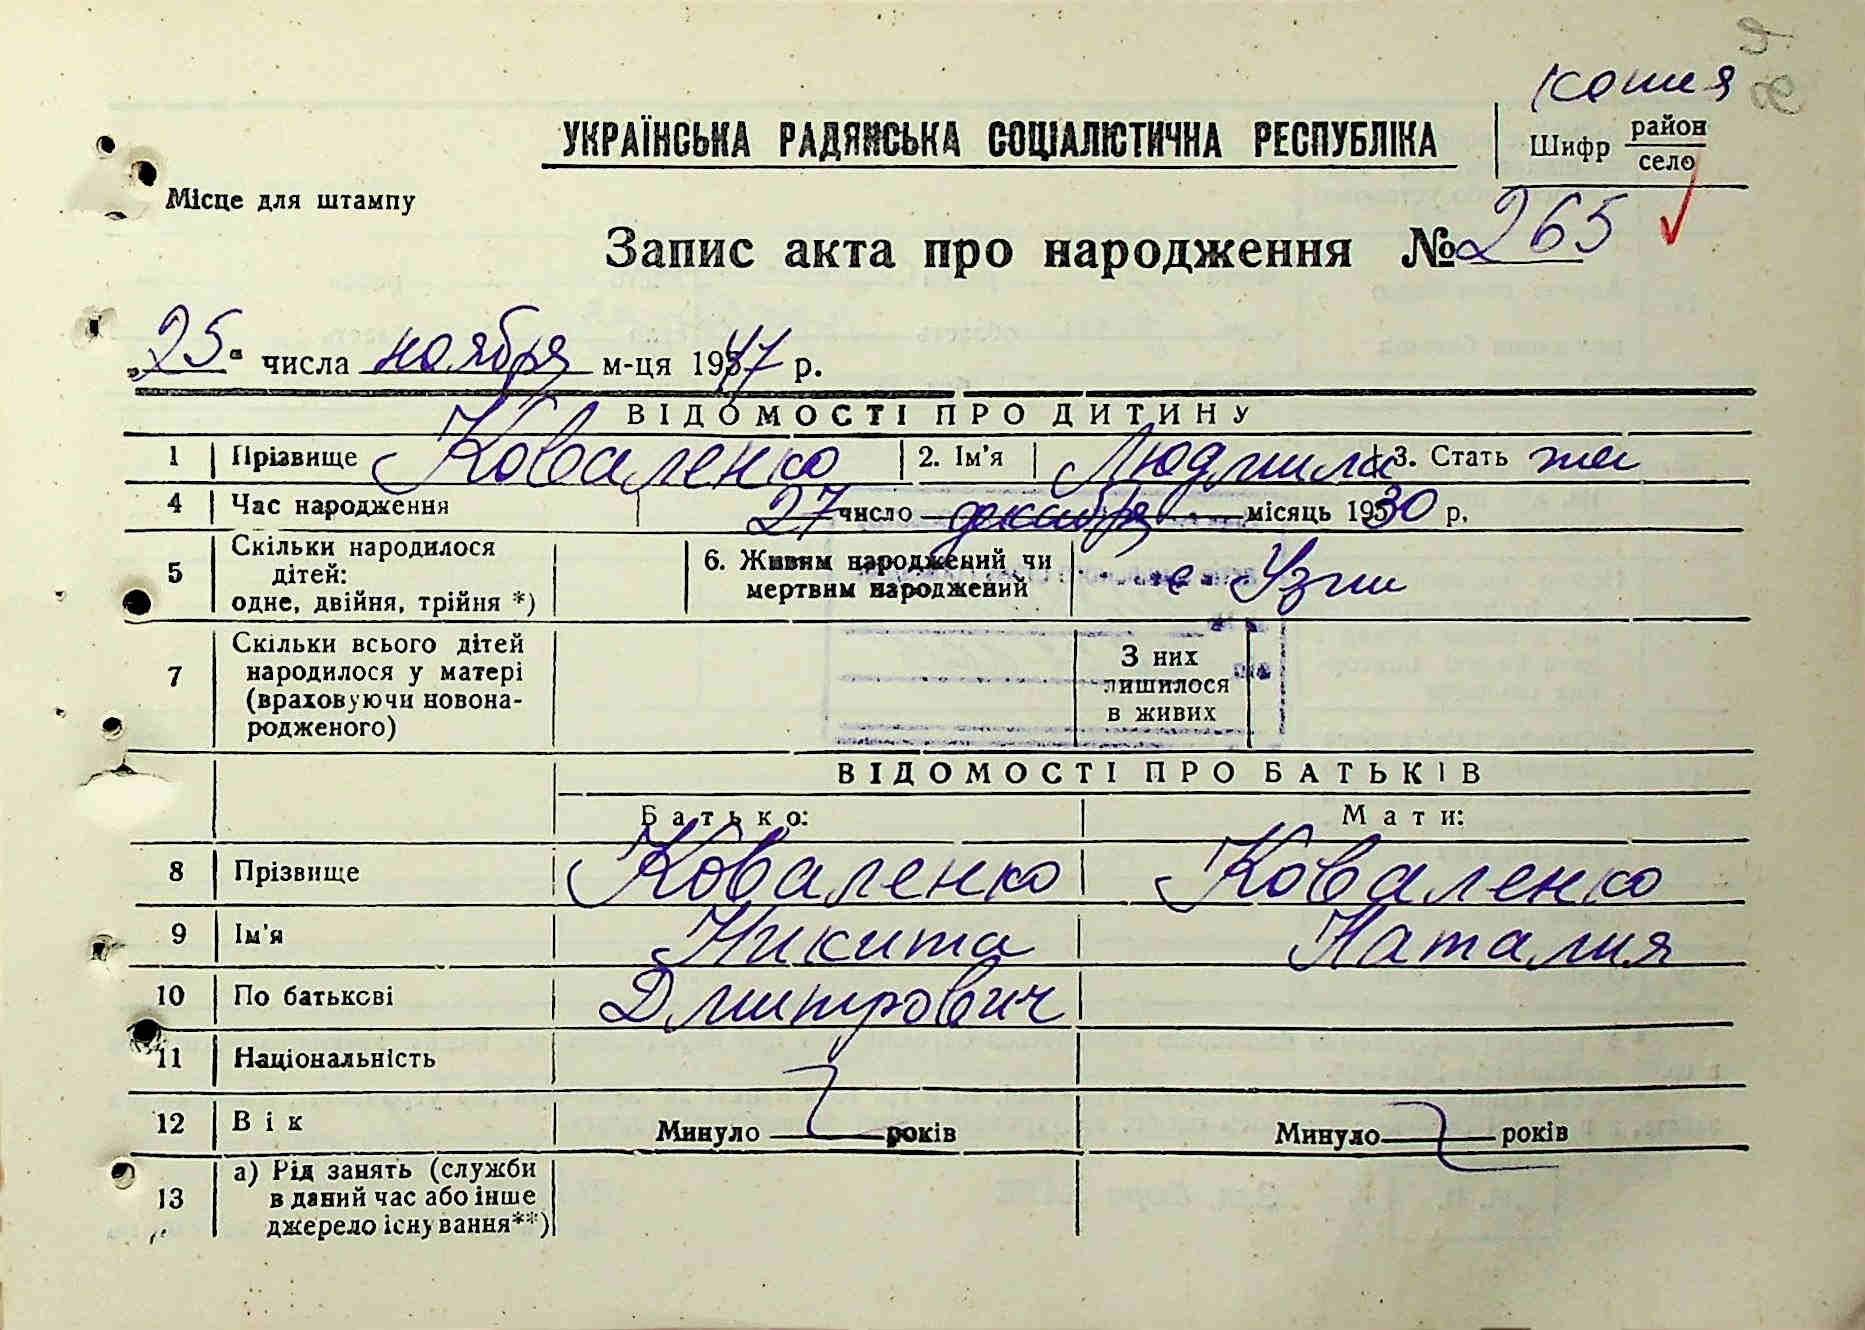 копия
УКРАЇНСЬКА РАДЯНСЬКА СОЦІАЛІСТИЧНА РЕСПУБЛІКА
Шифр район
село
Місце для штампу
Запис акта про народження № 265
„25" числа ноября м-ця 1947 р.
ВІДОМОСТІ ПРО ДИТИНУ
1 Прізвище Коваленко 2. Ім'я Людмила 3. Стать жен
4 Час народження 27 число декабря місяць 1930 р.
5 Скільки народилося дітей: одне, двійня, трійня *) 6. Живим народжений чи мертвим народжений с. Узин
7 Скільки всього дітей народилося у матері (враховуючи новонародженого) З них лишилося в живих
ВІДОМОСТІ ПРО БАТЬКІВ
Батько: Мати:
8 Прізвище Коваленко Коваленко
9 Ім'я Никита Наталия
10 По батькові Дмитрович
11 Національність
12 Вік Минуло років Минуло років
13 а) Рід занять (служби в даний час або інше джерело існування**)